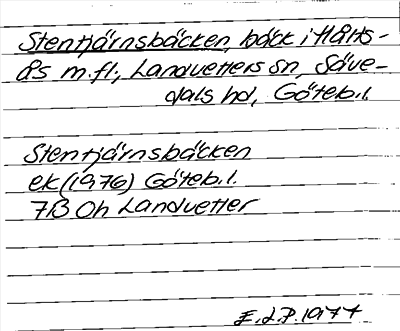 Stentjärnsbäcken, bäck i Hårts-
ås m.fl., Landvetters sn, Säve-
dals hd, Göteb.l.
Stentjärnsbäcken
ek (1976) Göteb.l.
7B 0h Landvetter
E.J.P. 1977